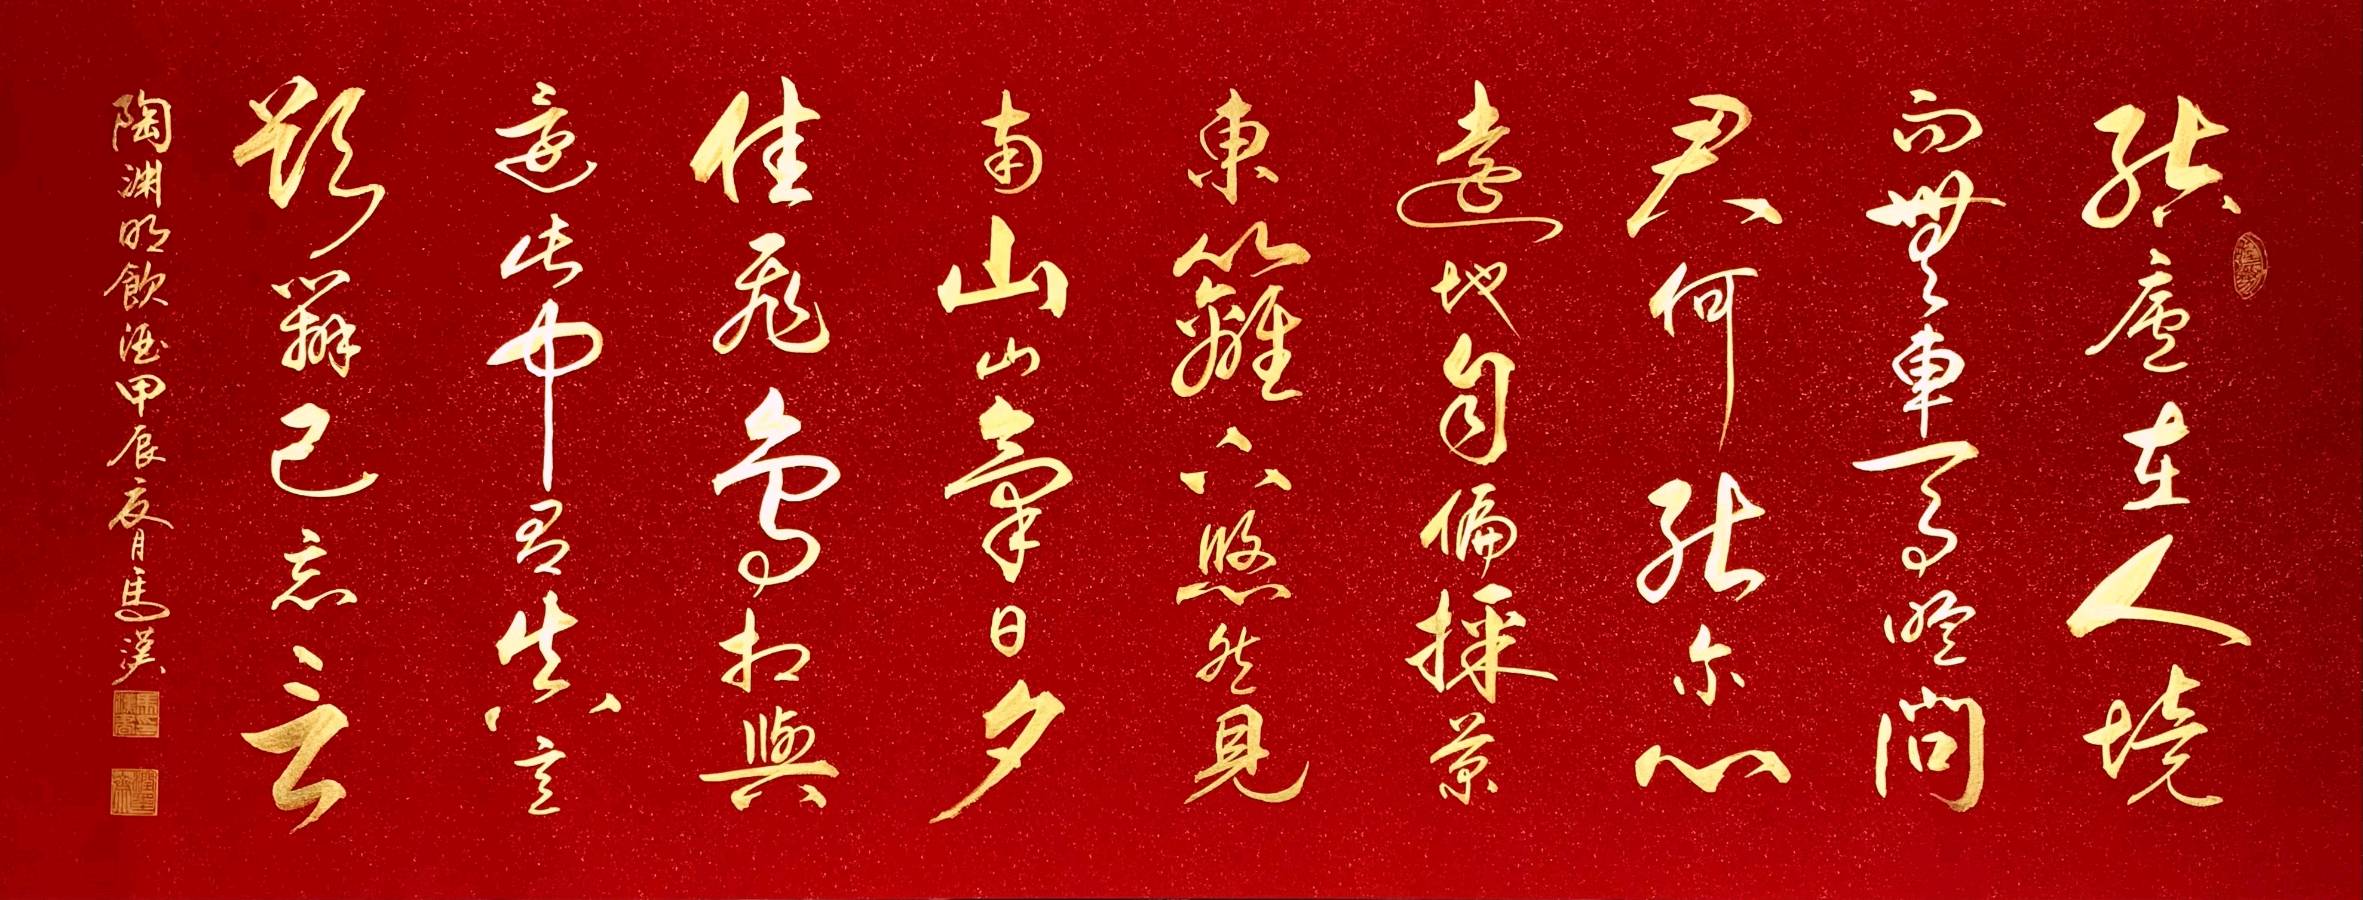 結廬在人境
而無車馬喧問
君何能尔心
遠地自偏採菊
東籬下悠然見
南山山氣日夕
佳飛鳥相與
還此中有真意
欲辯已忘言
陶淵明飲酒甲辰夏月馬漢